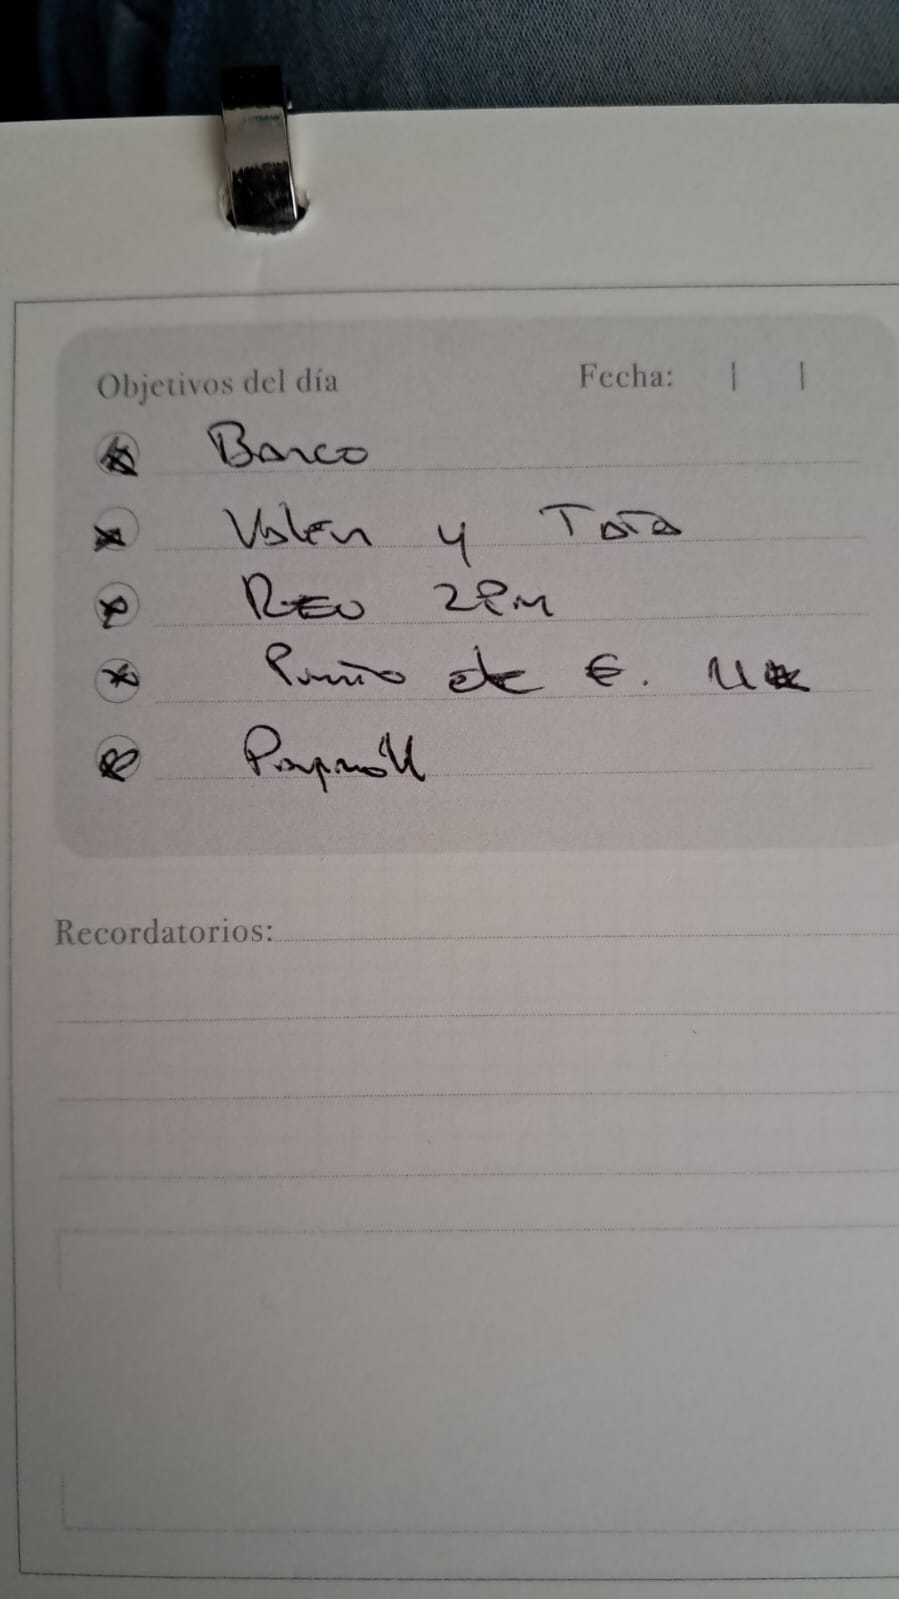 Objetivos del día Fecha: | |
Banco
Valen y Tata
REU 2PM
Punto de E.
Payroll
Recordatorios: